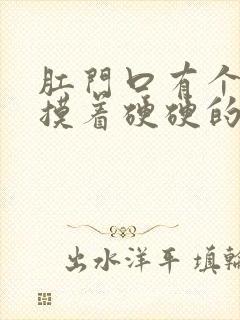 肛門口有个
摸着硬硬的
出水洋平 填輪